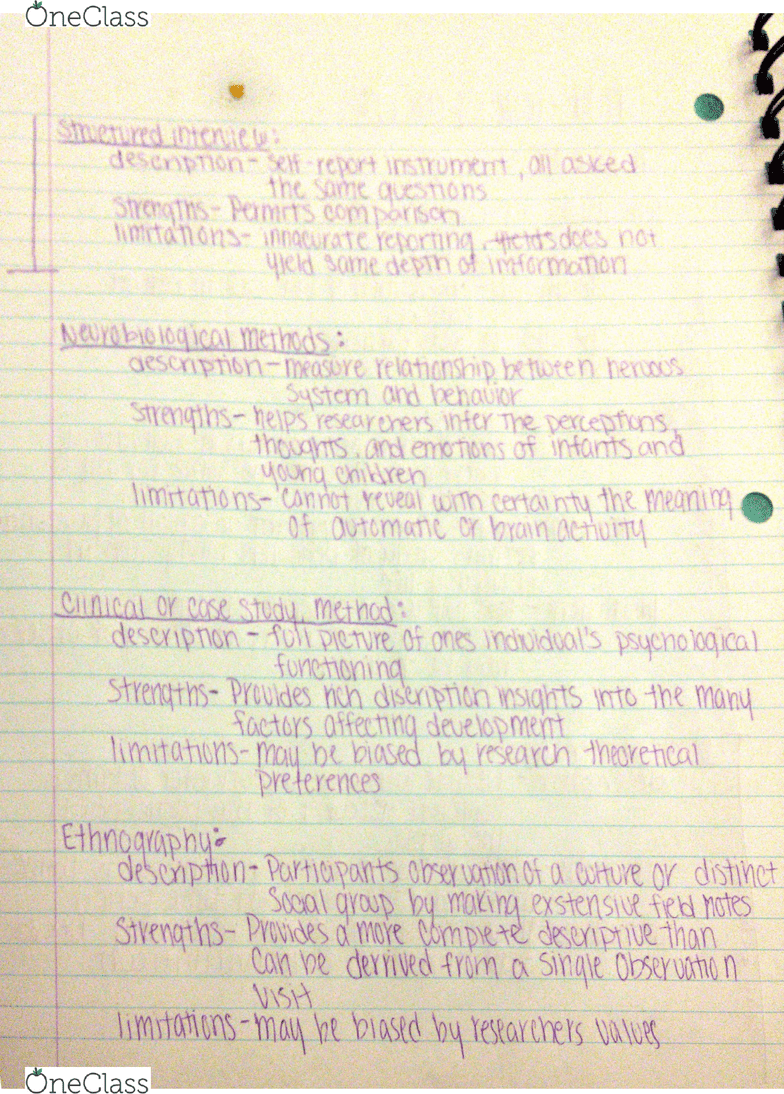 OneClass
Structured interview:
description - self-report instrument, all asked
the same questions
Strengths - Permits comparison
limitations - innacurate reporting, yields does not
yield same depth of imformation
Neurobiological methods:
description - measure relationship between nervous
system and behavior
Strengths - helps researchers infer the perceptions,
thoughts, and emotions of infants and
young children
limitations - cannot reveal with certainty the meaning
of automatic or brain activity
Clinical or case study, method:
description - full picture of ones individual's psychological
functioning
Strengths - Provides rich discription insights into the many
factors affecting development
limitations - may be biased by research theoretical
preferences
Ethnography:
description - Participants observation of a culture or distinct
Social group by making exstensive field notes
Strengths - Provides a more complete descriptive than
can be derrived from a single observation
visit
limitations - may be biased by researchers values
OneClass